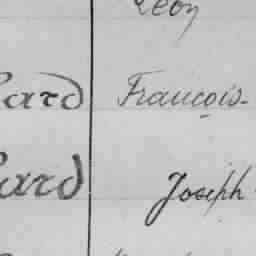 Léon
ard François-
ard Joseph